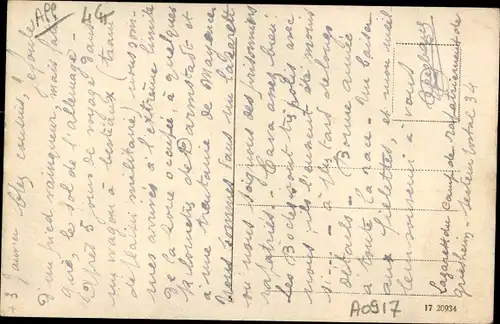 3 Janvier Mes cousins, Foulé
d'un pied vainqueur, mais fati
gué, le sol de l'allemagne -
Après 5 jours de voyage dans
un wagon à bestiaux (train
de plaisir militaire) nous som-
mes arrivés à l'extrême limite
de la zone occupée à quelques
kilomètres de Darmstadt et
à une trentaine de Mayence
Nous sommes dans un lazarett
où nous soignons des prisonniers
rapatriés - Ca va assez bien
Les Boches sont très polis avec
nous, ils de moins
tas de longs
détails - Bonne année
à toute la race - Un baiser
aux fillettes, et mon meil
leur souvenir à vous
Lazarett du Camp de rapatriement de
Griesheim - Secteur postal 34
A0917
17 20934